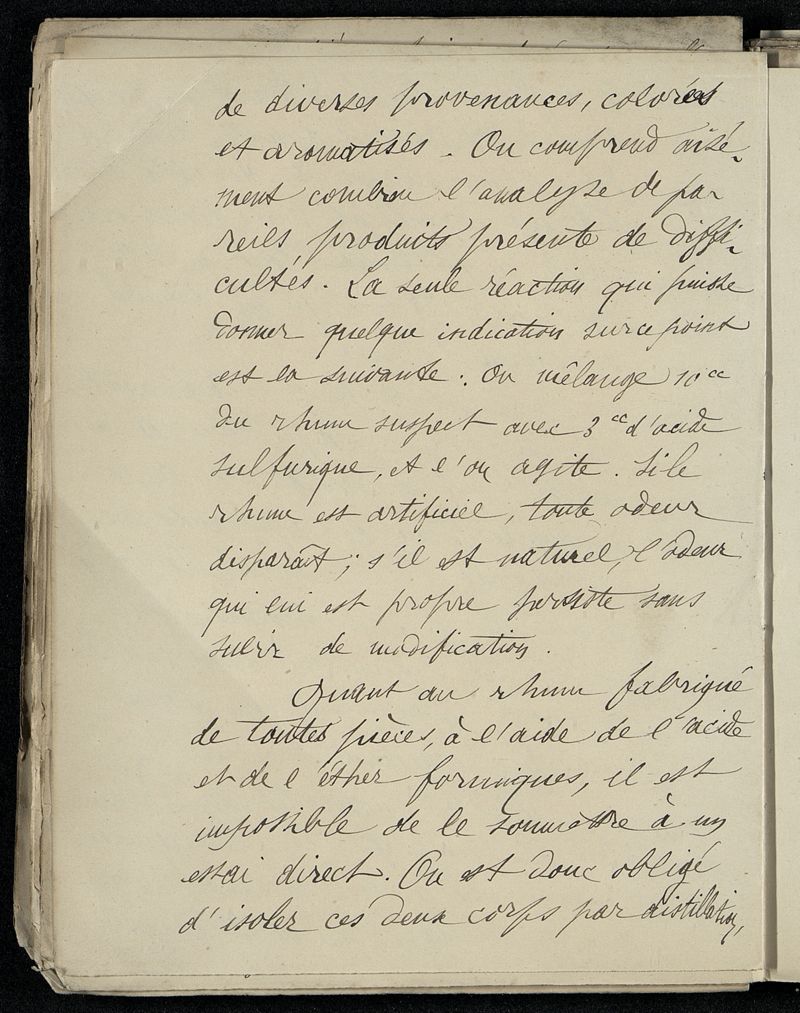 de diverses provenances, colorés
et aromatisés. On comprend aisé-
ment combien l'analyse de pa-
reils produits présente de diffi-
cultés. La seule réaction qui puisse
donner quelque indication sur ce point
est la suivante : On mélange 10 cc
du rhum suspect avec 3 cc d'acide
sulfurique, et l'on agite. Si le
rhum est artificiel, toute odeur
disparaît ; s'il est naturel, l'odeur
qui lui est propre persiste sans
subir de modification.
Quant au rhum fabriqué
de toutes pièces, à l'aide de l'acide
et de l'éther formiques, il est
impossible de le soumettre à un
essai direct. On est donc obligé
d'isoler ces deux corps par distillation,